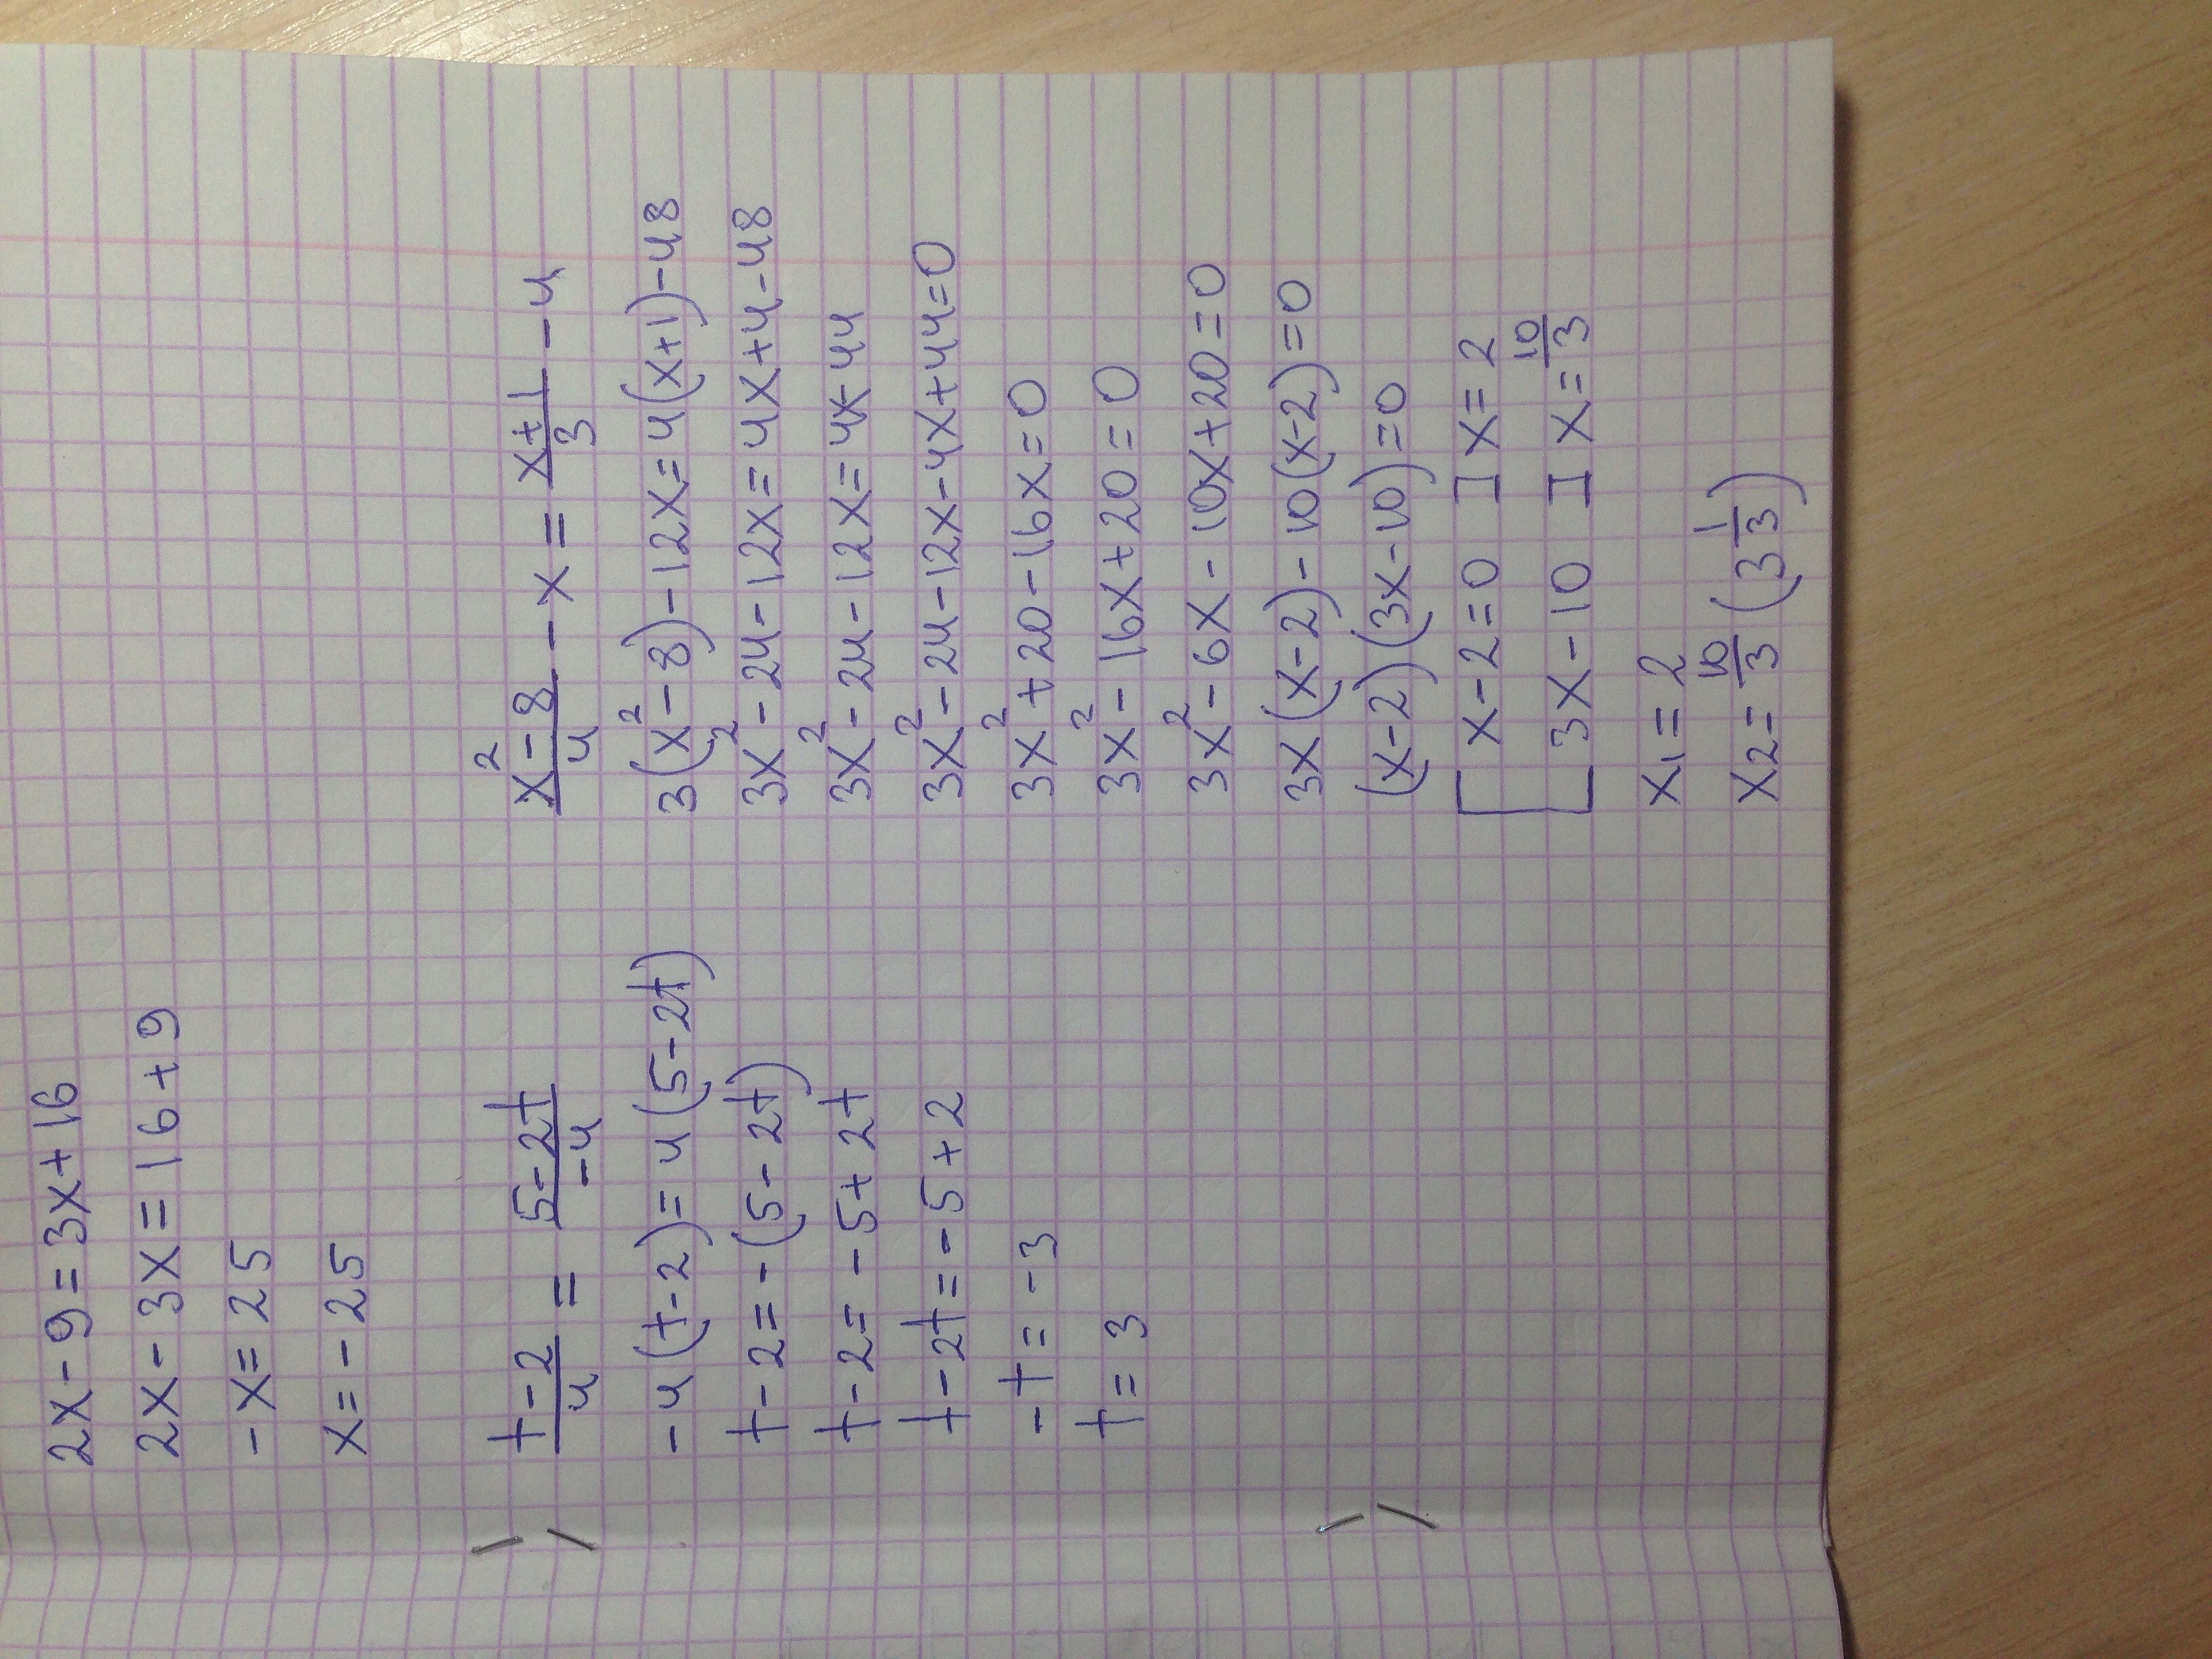 2x-9=3x+16
2x-3x=16+9
-x=25
x=-25
t-2/4 = 5-2t/-4
-4(t-2)=4(5-2t)
t-2=-(5-2t)
t-2=-5+2t
t-2t=-5+2
-t=-3
t=3
x²-8/4 - x = x+1/3 - 4
3(x²-8)-12x=4(x+1)-48
3x²-24-12x=4x+4-48
3x²-24-12x=4x-44
3x²-24-12x-4x+44=0
3x²+20-16x=0
3x²-16x+20=0
3x²-6x-10x+20=0
3x(x-2)-10(x-2)=0
(x-2)(3x-10)=0
[x-2=0 ] x=2
[3x-10 I x=10/3
x1=2
x2=10/3 (3 1/3)